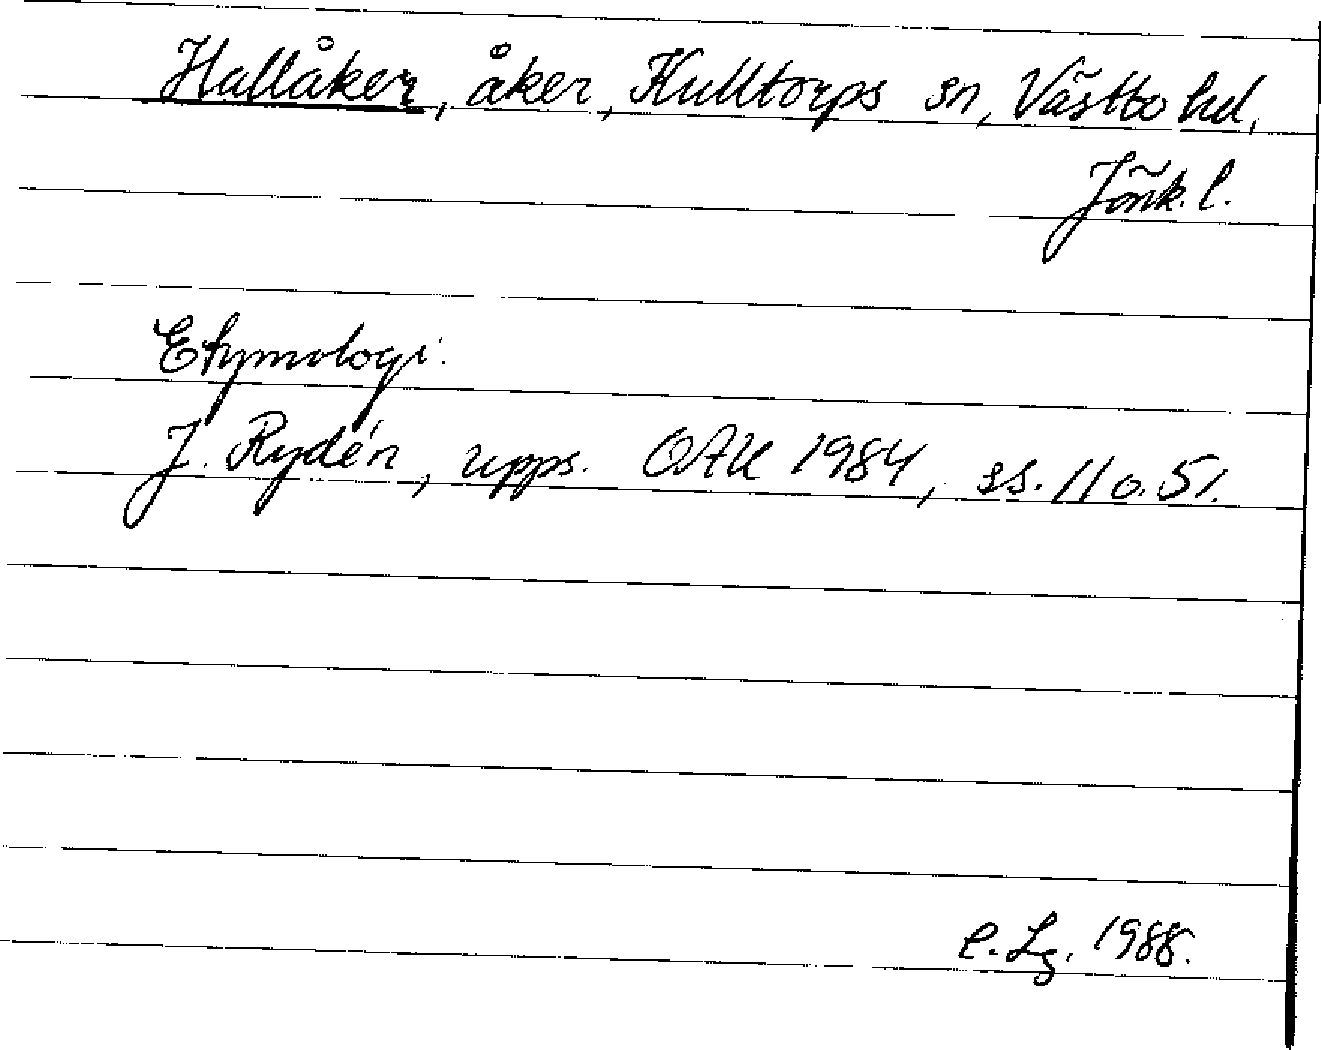 Hallåker, åker, Kulltorps sn, Västbo hd,
Jönk. l.
Etymologi.
J. Rydén, upps. OAU 1984, ss. 11 o. 51.
C. Lg. 1988.